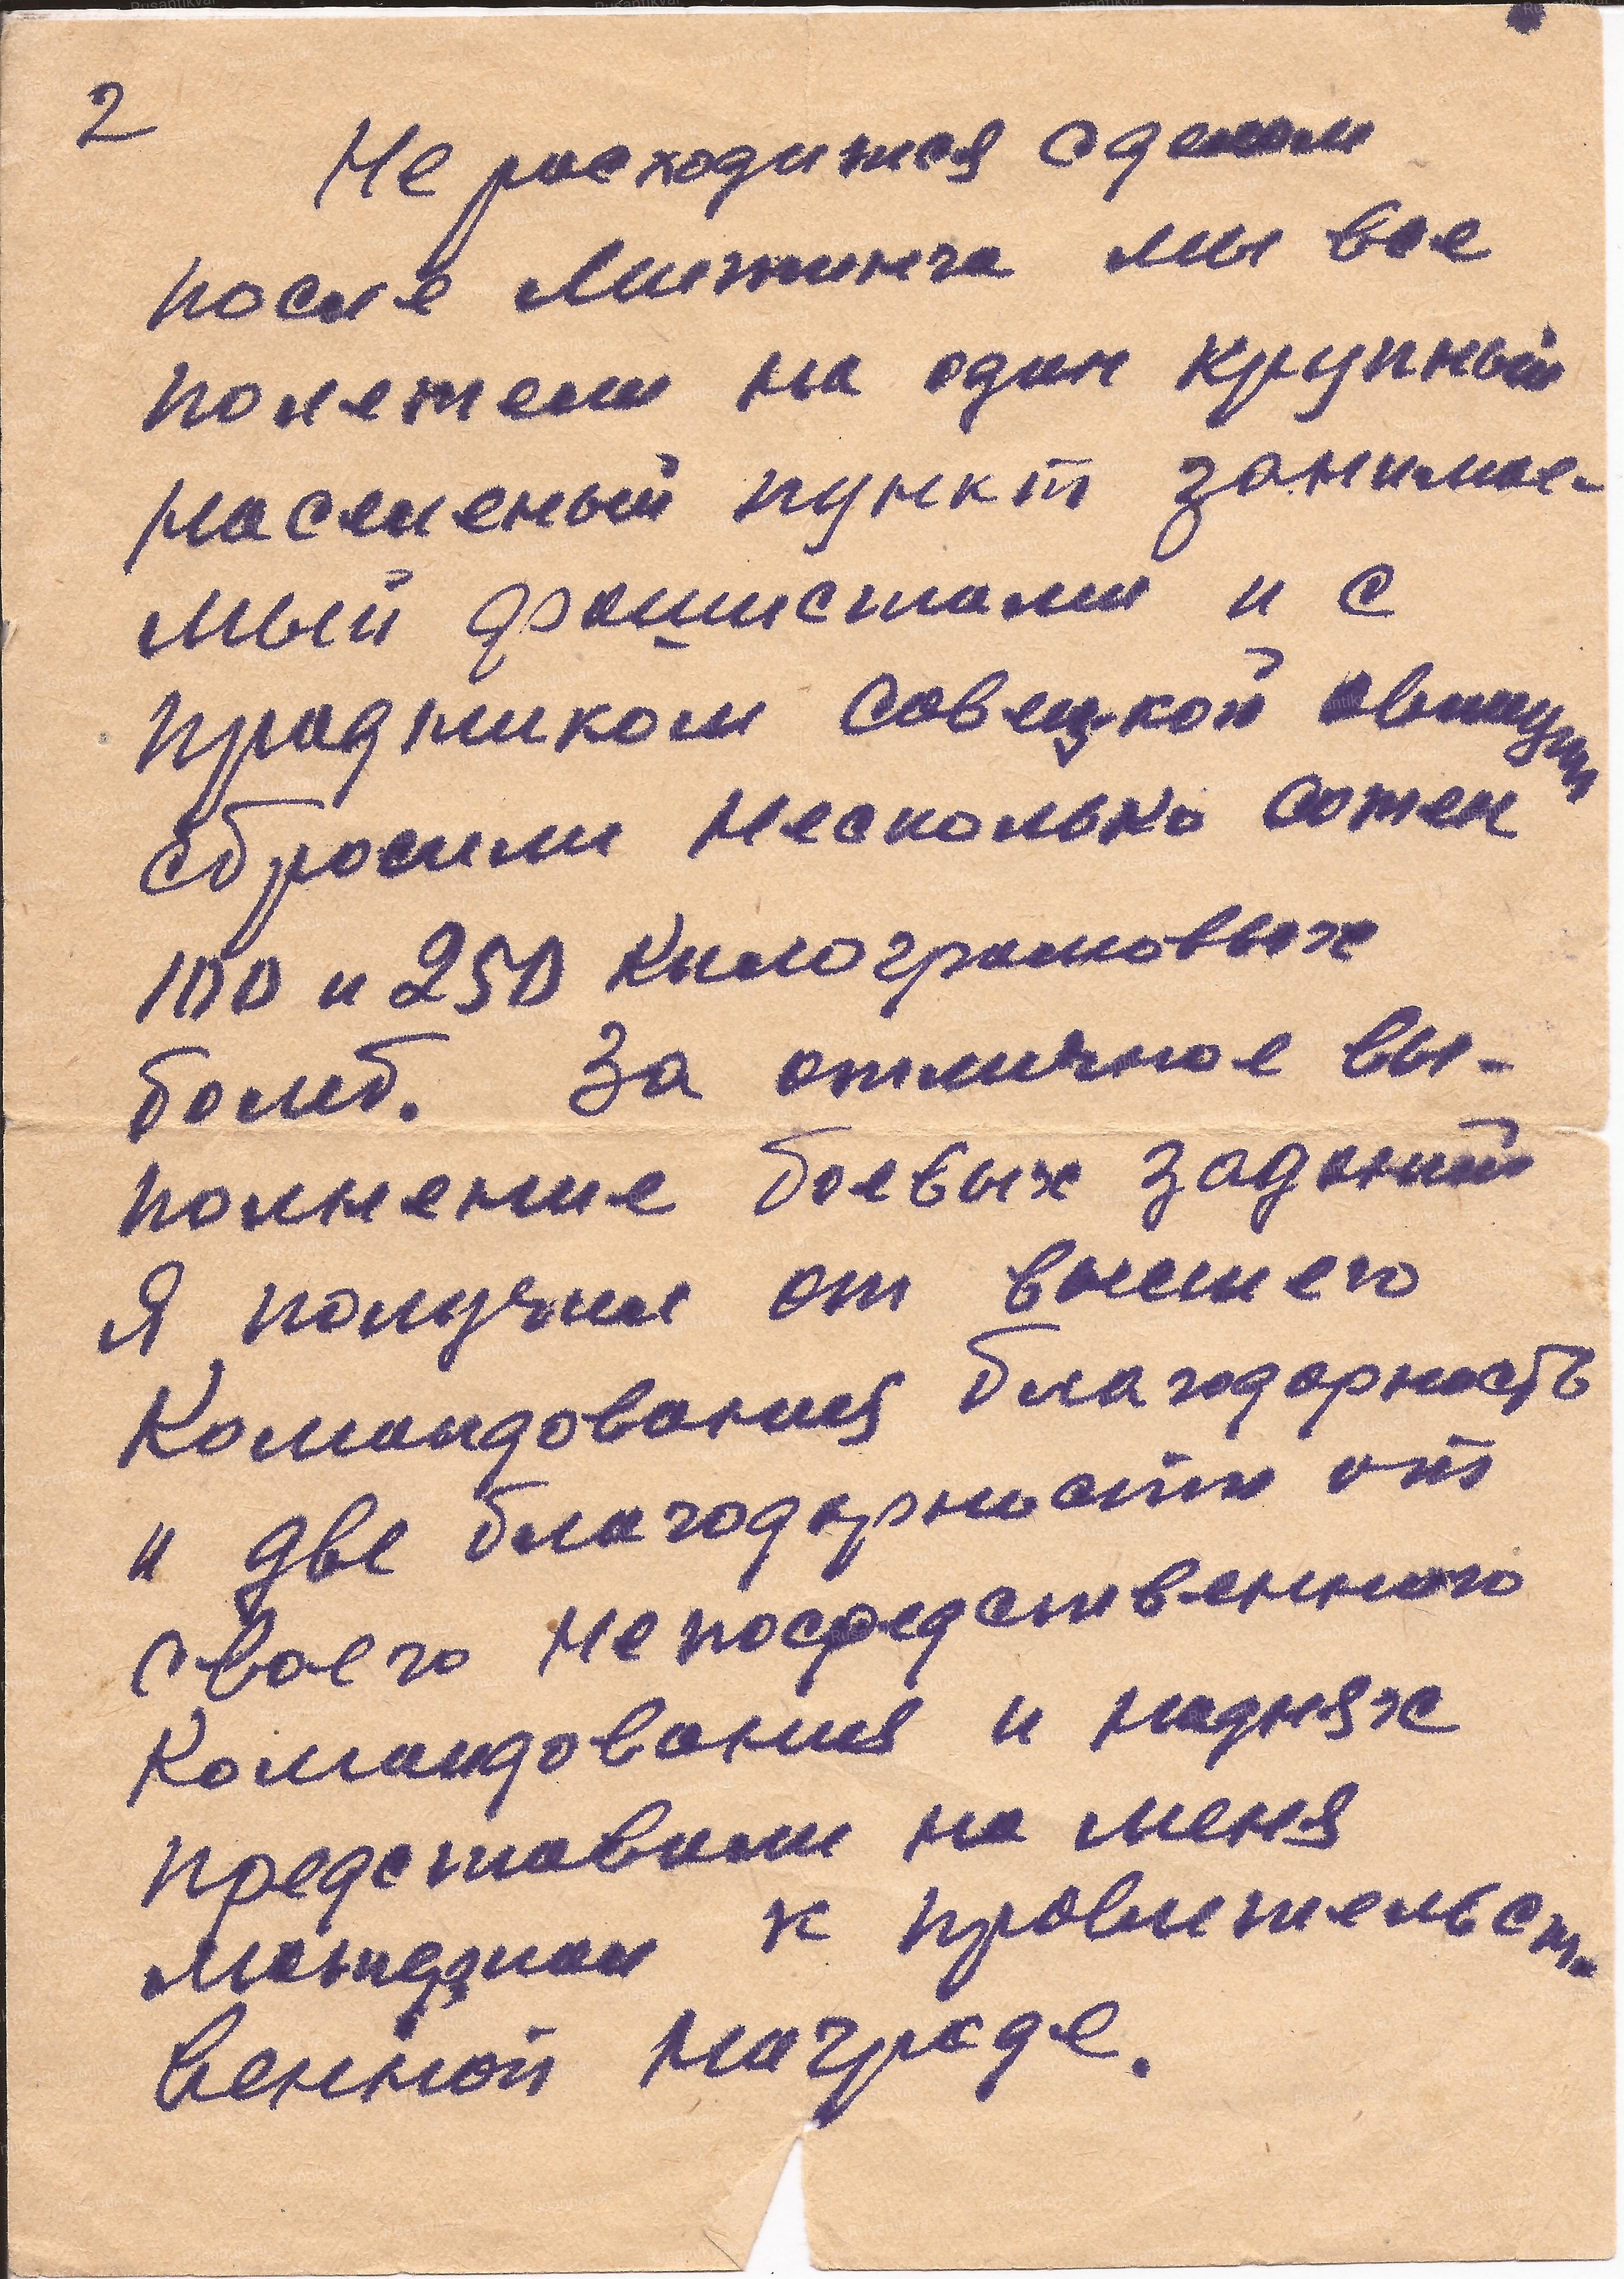 2
Не расходится с делом
после митинга мы все
полетели на один крупный
населеный пункт занимае-
мый фашистами и с
прадником совецкой авиации
сбросили несколько сотен
100 и 250 килограмовых
бомб. За отличное вы-
полнение боевых заданий
Я получил от высшего
Командования благодарность
и две благодарности от
своего непосредственного
Командования и наднях
представили на меня
к правительст-
венной награде.